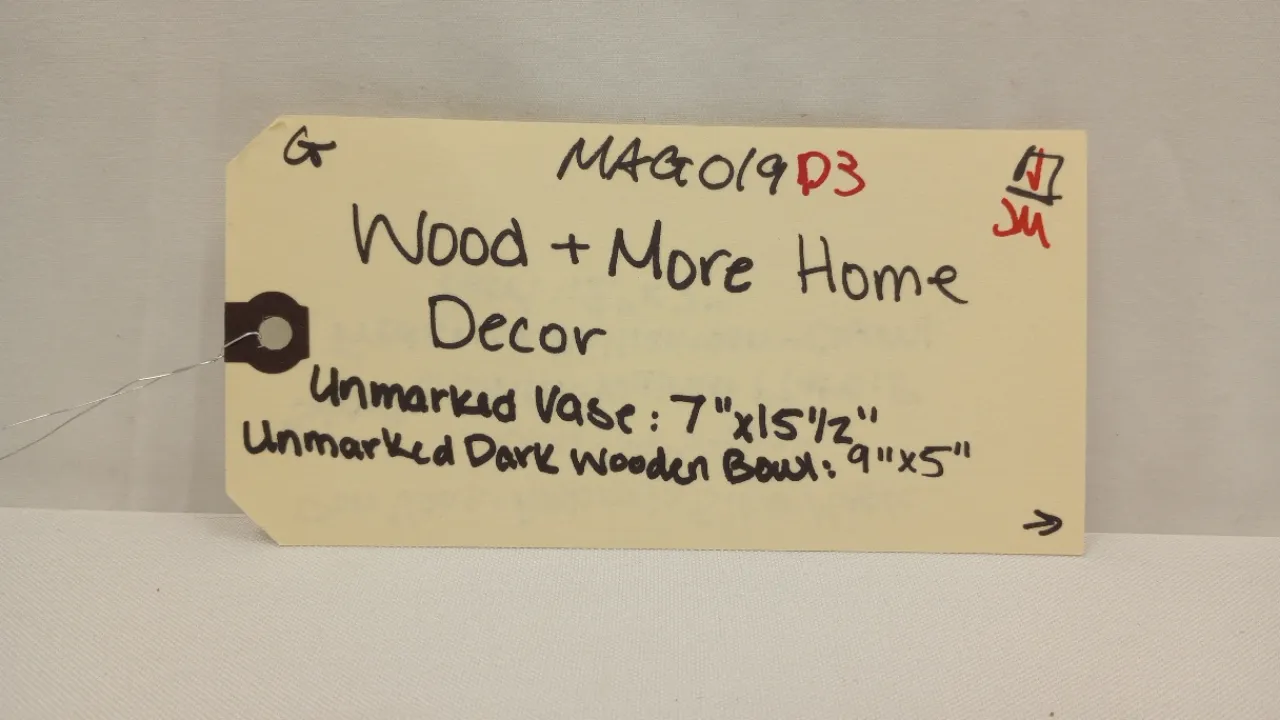 G
MAG019 D3
JM
Wood + More Home
Decor
Unmarked Vase: 7"x15 1/2"
Unmarked Dark Wooden Bowl: 9"x5"
→